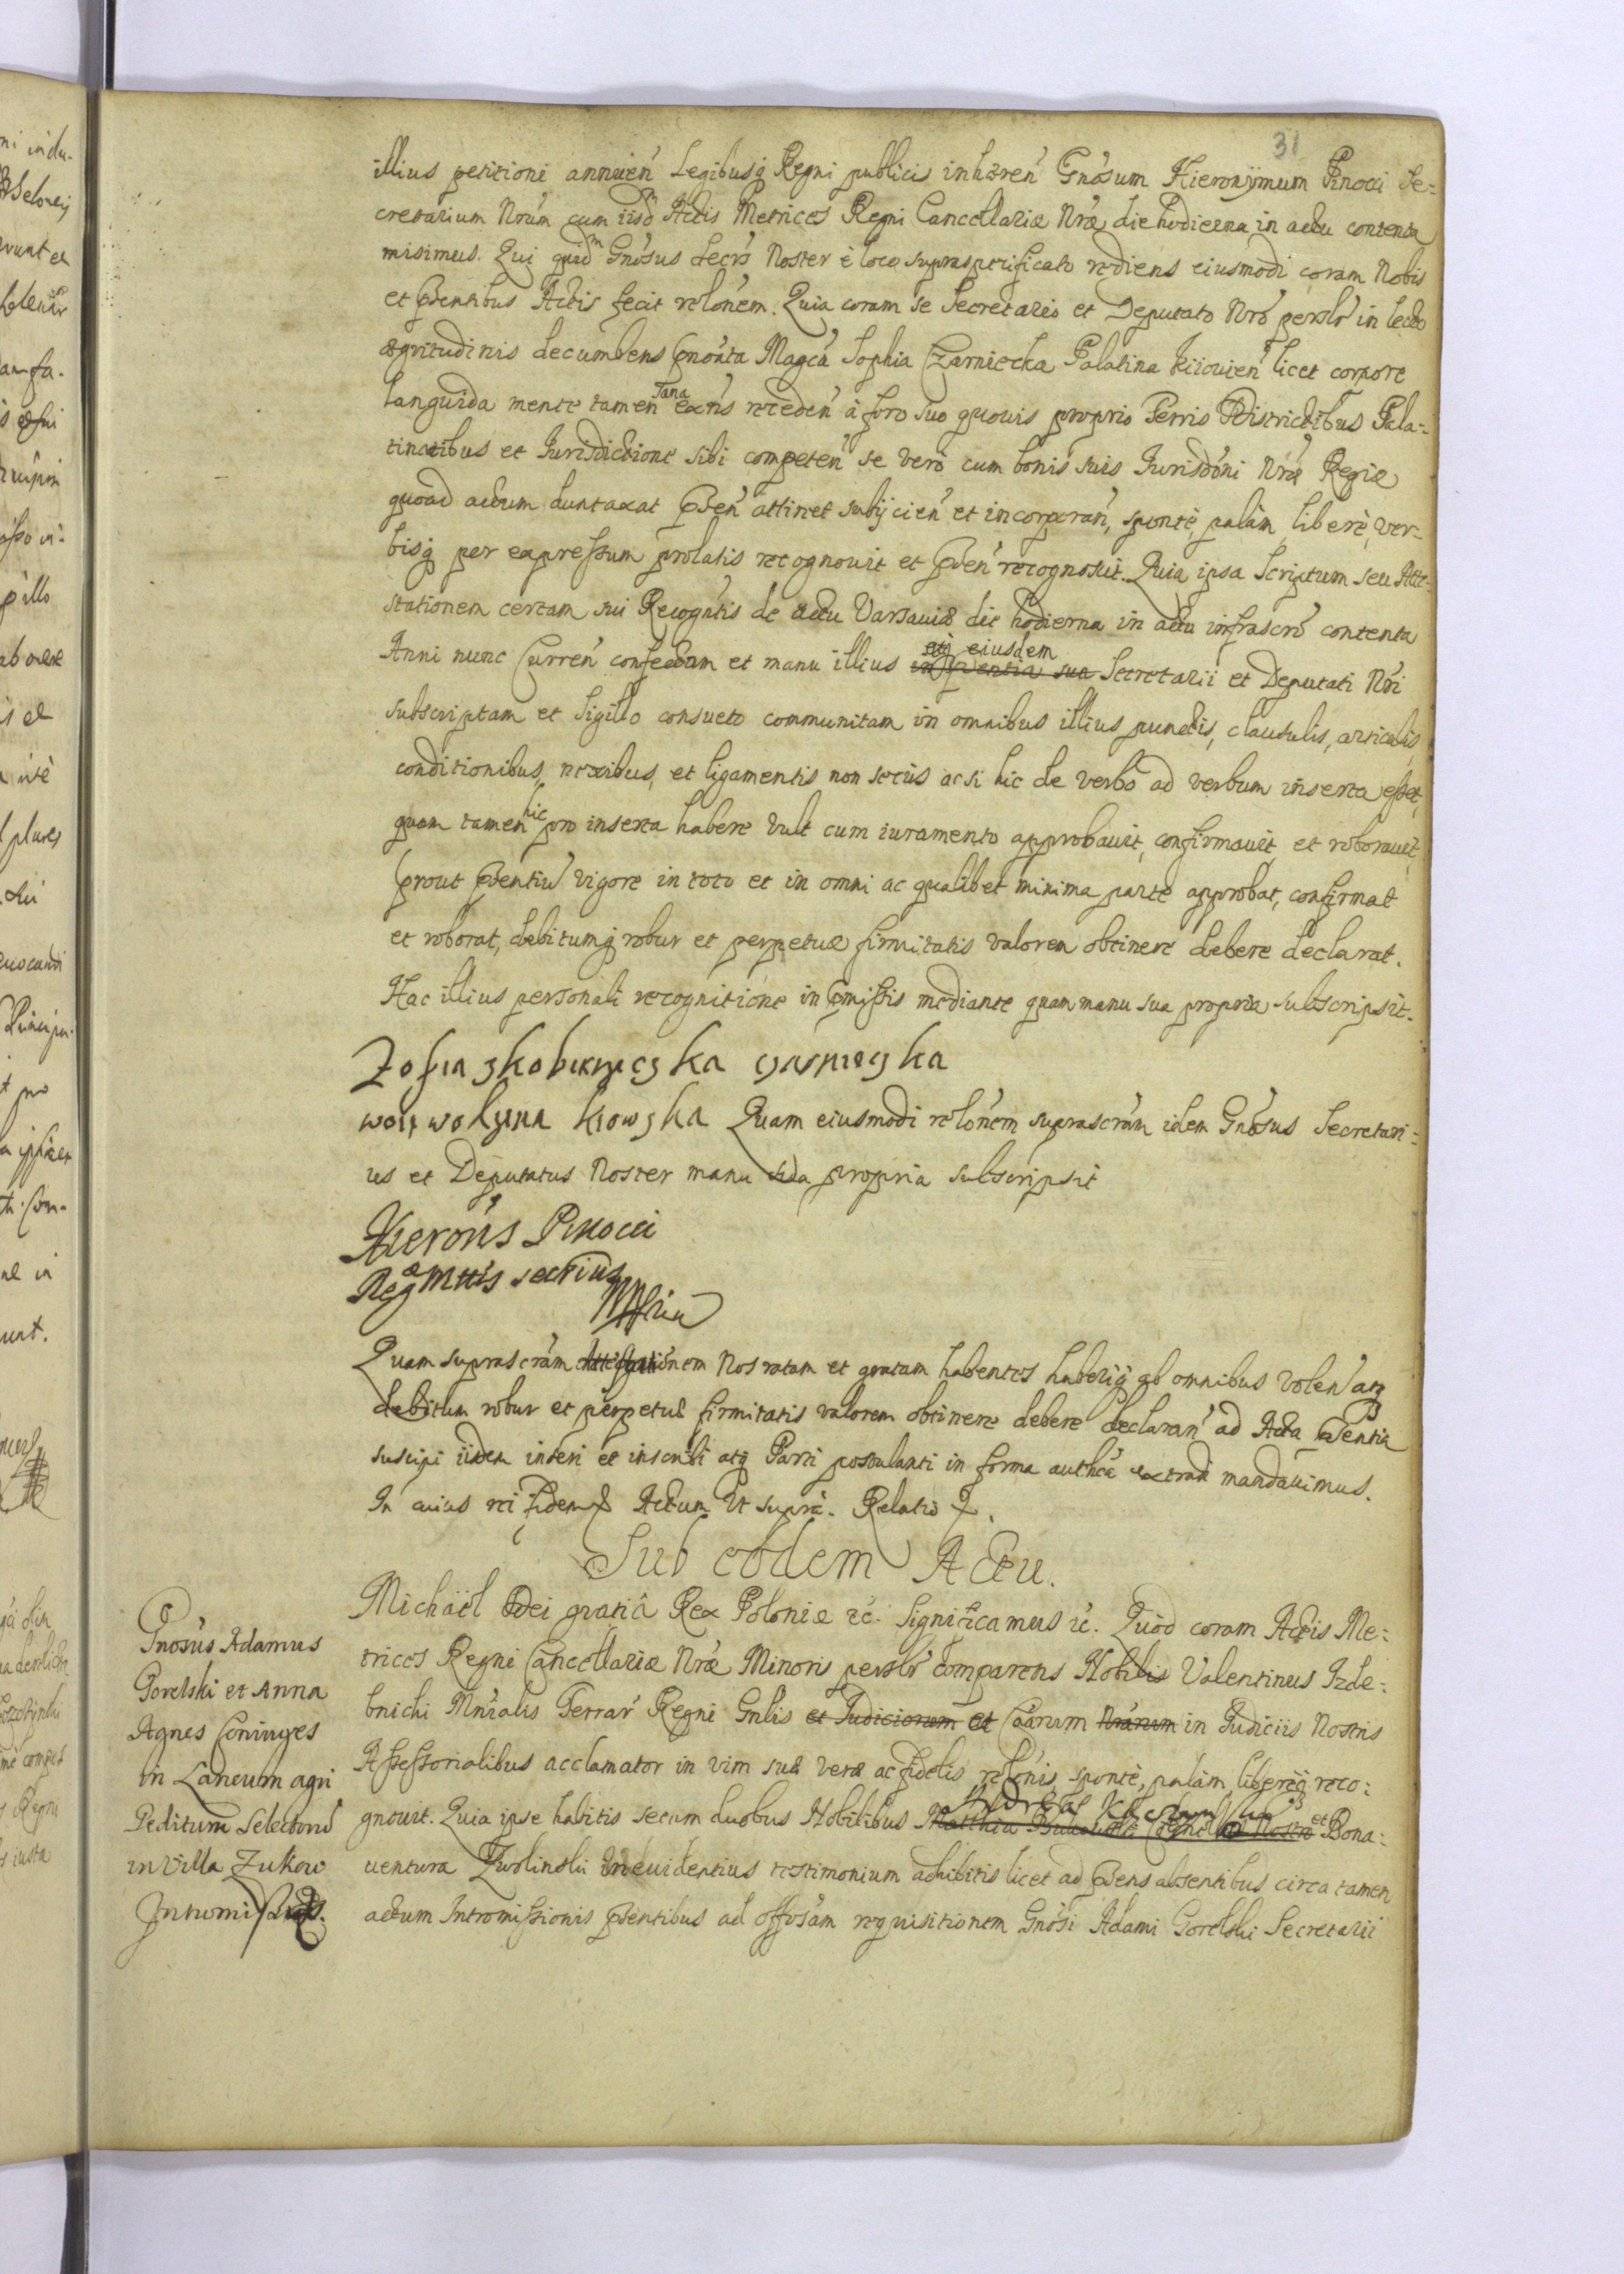 31
illius petitioni annuen̄ Legibusq̃ Regni publicis inhæren̄ Gnōsum Hieronÿmum Pinocci Se=
cretarium Nr̄um cum iisdm Actis Metrices Regni Cancellariæ Nr̄æ die hodierna in actu contenta
misimus. Qui quidm Gnōsus Secrs̄ Noster è loco supraspecificato rediens eiusmodi coram Nobis
et p̄sentibus Actis fecit relōnem. Quia coram se Secretario et Deputato Nr̄o persłr in lecto
ægritudinis decumbens p̄nōata Magcā Sophia Czarniecka Palatina Kiiouien̄ licet corpore
languida mente tamen sana exn̄s receden̄ à foro suo quouis proprio Terris Districtibus Pala=
tinatibus et Jurisdictione sibi competen̄ se verò cum bonis suis Jurisdōni Nr̄æ Regiæ
quoad actum duntaxat p̄sen̄ attinet subijcien̄ et incorporan̄, spontè, palàm, liberè, ver=
bisq̃ per expressum prolatis recognouit et p̄sen̄ recognoscit. Quia ipsa Scriptum seu Atte=
stationem certam sui Recogn̄tis de actu Varsauiæ die hodierna in actu infrascrō contenta
Anni nunc Curren̄ confectam et manu illius eiusdem in p̄sentia sua Secretarii et Deputati Nr̄i
subscriptam et Sigillo consueto communitam in omnibus illius punctis, clausulis, articulis,
conditionibus, nexibus, et ligamentis non secùs ac si hic de verbo ad verbum inserta esset,
quam tamen hic pro inserta habere vult cum iuramento approbauit, confirmauit, et roborauit,
prout p̄sentiū vigore in toto et in omni ac qualibet minima parte approbat, confirmat
et roborat, debitumq̃ robur et perpetuæ firmitatis valorem obtinere debere declarat.
Hac illius personali recognitione in p̄missis mediante quam manu sua propria subscripsit.
Zofia zkobierzycz ka czarniecz ka
woiewodzyna kiowska Quam eiusmodi relōnem suprascrām idem Gnōsus Secretari=
us et Deputatus Noster manu sua propria subscripsit
Hierōn̄s Pinocci
Regæ Mttis sectrius
Quam suprascrām Attestationem Nos ratam et gratam habentes haberiq̃ ab omnibus volen̄ atq̃
debitum robur et perpetuæ firmitatis valorem obtinere debere declaran̄ ad Acta p̄sentia
suscipi iisdem inseri et inscribi atq̃ Parti postulanti in forma authcā extradi mandauimus.
In cuius rei fidem Actum ut suprà. Relatio
Sub eodem Actu.
Michaël Dei gratiâ Rex Poloniæ etc. Significamus etc. Quòd coram Actis Me=
trices Regni Cancellariæ Nr̄æ Minoris persłr comparens Nobilis Valentinus Izde=
bnicki Mnr̄alis Terrar̄ Regni Gnlis et Judiciorum et Caarum Nr̄arum in Judiciis Nostris
Assessorialibus acclamator in vim suæ veræ ac fidelis relōnis, spontè, palàm, liberèq̃ reco=
gnouit. Quia ipse habitis secum duobus Nobilibus Matthia et Bona=
uentura Zwolinski in euidentius testimonium adhibitis licet ad p̄sens absentibus circa tamen
actum Intromissionis p̄sentibus ad offōsam requisitionem Gnōsi Adami Gorelski Secretarii
Gnosūs Adamus
Gorelski et Anna
Agnes Coniuges
in Laneum agri
Peditum Selectorū
in Villa Zukow